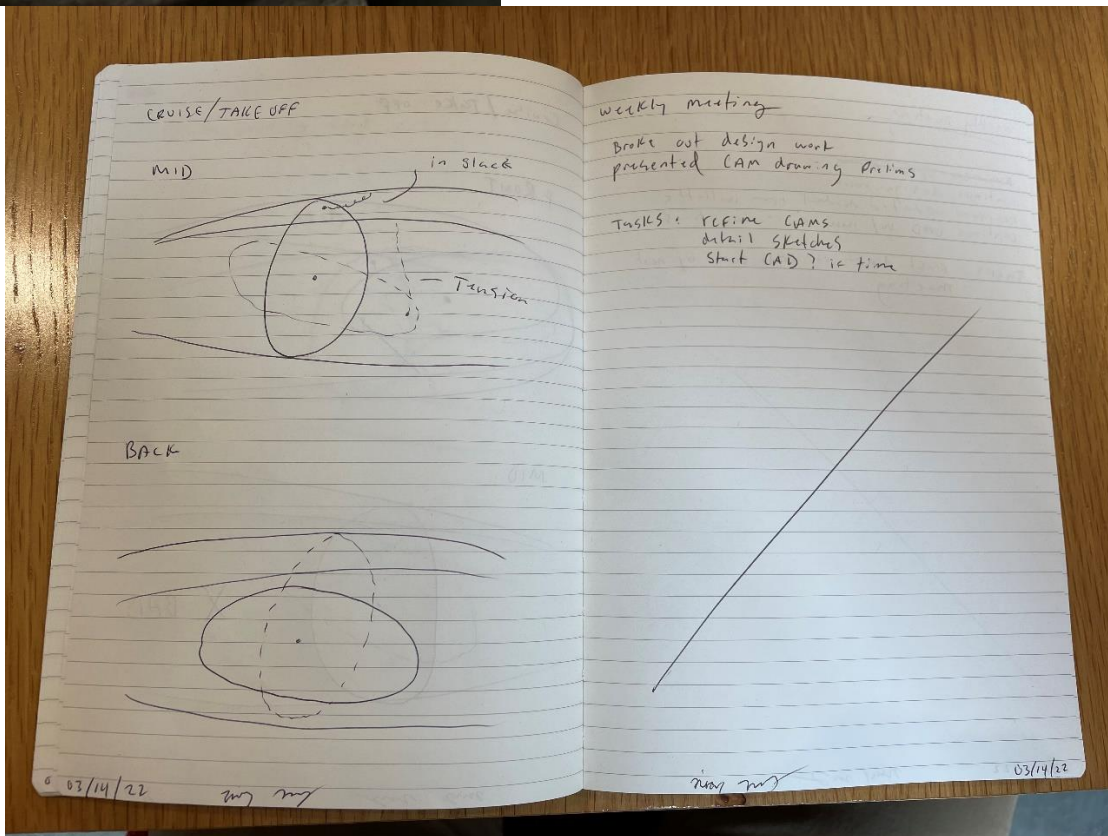 CRUISE/TAKE OFF
MID
in slack
Tension
BACK
03/14/22
weekly meeting
Broke out design work
presented CAM drawing Prelims
Tasks: refine CAMS
detail sketches
start CAD? if time
03/14/22